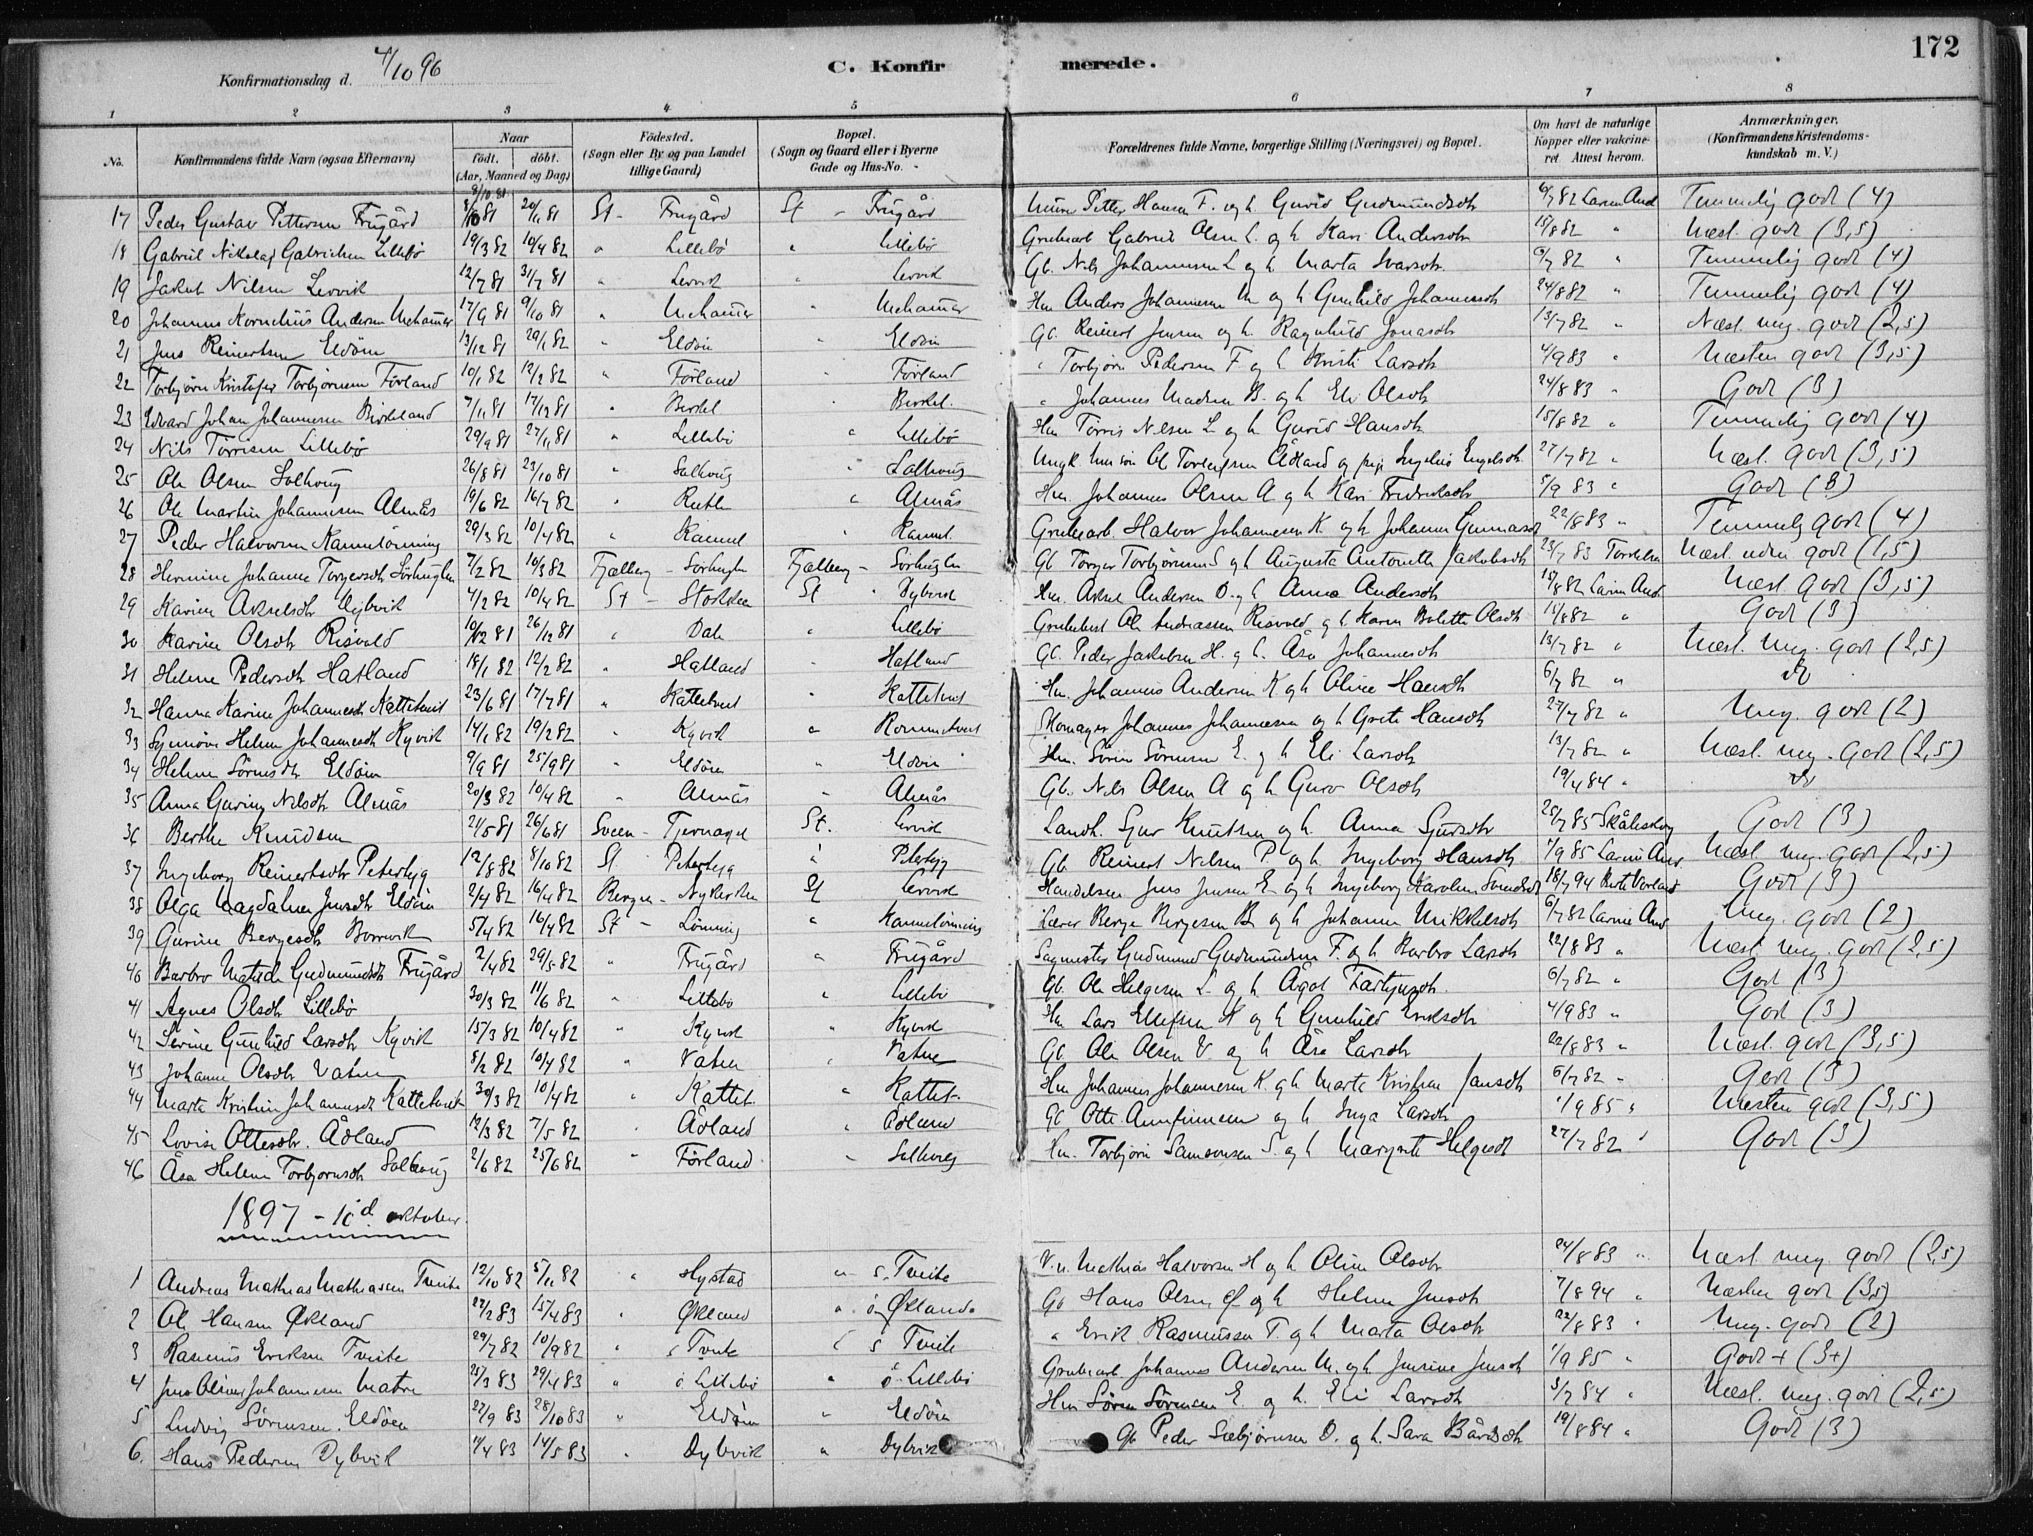 172
Konfirmationsdag d. 4/10 96
C. Konfirmerede.
1 2 3 4 5 6 7 8
No. Konfirmandens fulde Navn (ogsaa Efternavn) Naar født. døbt. (Aar, Maaned og Dag) Fødested. (Sogn eller By og paa Landet tillige Gaard) Bopæl. (Sogn og Gaard eller i Byerne Gade og Hus-No. Forældrenes fulde Navne, borgerlige Stilling (Næringsvei) og Bopæl. Om havt de naturlige Kopper eller vakcineret. Attest herom. Anmærkninger. (Konfirmandens Kristendomskundskab m. V.)
17 Peder Gustav Pettersen Frugård 20/11 81 St - Frugård St - Frugård Petter Hansen F. og h. Guvid Gudmundsdtr 6/7 82 Temmelig godt (4)
18 Gabriel Nikolaj Gabrielsen Lillebø 19/3 82 10/4 82 " Lillebø " Lillebø Grubearb Gabriel Olsen L. og h. Kari Andersdtr 15/8 82 " Næst. godt (3,5)
19 Jakob Nilsen Lervik 12/7 81 31/7 81 " Lervik " Lervik Gb. Nils Johannesen L og h. Marta Ivarsdtr. 6/7 82 " Temmelig godt (4)
20 Johannes Kornelius Andersen 17/9 81 9/10 81 " Hm Anders Johannesen og h Gunhild Johannesdtr 24/8 82 " Temmelig godt (4)
21 Jens Reinertsen Eldøen 13/12 81 29/1 82 " Eldøen Eldøen Gb. Reinert Jensen og h. Ragnhild Jonasdtr 13/7 82 " Næst. meg. godt (2,5)
22 Torbjørn Kristofer Torbjørnsen Førland 10/1 82 12/2 82 " Førland Førland " Torbjørn Pedersen F og h Kristi Larsdtr 4/9 83 " Næsten godt (3,5)
23 Edvard Johan Johannesen Birkeland 7/11 81 17/12 81 " Birkel Birkel. " Johannes Madsen B. og h Eli Olsdtr 24/8 83 " Godt (3)
24 Nils Tørrisen Lillebø 29/9 81 27/11 81 " Lillebø " Lillebø Hm Tørris Nilsen L og h Guvid Hansdtr 15/8 82 " Temmelig godt (4)
25 Ole Olsen Solhoug 26/8 81 23/10 81 " Solhoug " Solhoug Ungk. Ole Torleifsen Ådland og pige Engelsdtr. 27/7 82 " Næst. godt (3,5)
26 Ole Martin Johannesen Almås 19/6 82 16/7 82 " " Almås Hm. Johannes Olsen A og h Kari Fredriksdtr 5/9 83 " Godt (3)
27 Peder Halvorsen Kannelønning 29/3 82 10/4 82 " Kannel Kannel. Grubearb. Halvor Johannesen K og h Johanne Gunnarsdtr 22/8 83 " Temmelig godt (4)
28 Hermine Johanne Torgersdtr 7/2 82 10/3 82 Fjelberg - Fjelberg - Gb Torger Torbjørnsen S og h Augusta Antonette Jakobsdtr 23/7 83 Næst. uden godt (1,5)
29 Karine Akselsdtr Dybvik 4/2 82 10/4 82 St - St " Dybvik Hm. Aksel Andersen D. og h Anna Andersdtr 15/8 82 Næst godt (3,5)
30 Karine Olsdtr Risvold 10/12 81 26/12 81 " Dale " Lillebø Ole Andreassen Risvold og h Karen Bolette Olsdtr 15/8 82 " Godt (3)
31 Helene Pedersdtr Hatland 18/1 82 12/2 82 " Hatland Hatland Gb. Peder Jakobsen H. og h. Åsa Johannesdtr 13/7 82 " Næst. meg. godt (2,5)
32 Hanna Karine Johannesdtr Kattetveit 23/6 81 17/7 81 " Kattetveit Kattetveit Hm. Johannes Andersen K og h Oline Hansdtr 6/7 82 "
33 Synnøve Helene Johannesdtr Kyvik 14/1 82 19/2 82 " Kyvik " Skomager Johannes Johannesen og h Grete Hansdtr 27/7 82 " Meg. godt (2)
34 Helene Sørensdtr Eldøen 9/9 81 25/9 81 " Eldøen " Eldøen Hm. Søren Sørensen E. og h Eli Larsdtr 13/7 82 " Næst. meg. godt (2,5)
35 Anna Gurine Nilsdtr Almås 20/3 82 10/4 82 " Almås " Almås Gb. Nils Olsen A og h Guro Olsdtr 19/4 84 "
36 Berthe Knudsen 21/5 81 26/6 81 Sveen - Tjernagel St. Lervik Landh. Sjur Knutsen og h. Anna Sjursdtr 28/7 85 Godt (3)
37 Ingeborg Reinertsdtr Petersbyg 12/8 82 8/10 82 St Petersbyg " Petersbyg Gb. Reinert Nilsen P. og h Ingeborg Hansdtr 1/9 85 Næst meg. godt (2,5)
38 Olga Magdalene Jensdtr Eldøen 2/4 82 16/4 82 Bergen - Nykirken St Lervik Handelsm Jens Jensen E. og h Ingeborg Karoline Svendsdtr 18/7 94 Godt (3)
39 Gurine Bergesdtr Borrevik 5/4 82 16/4 82 St - Lønning " Kannelønning Lærer Berge Bergesen B og h Johanne Mikkelsdtr 6/7 82 Meg. godt (2)
40 Barbro Matilde Gudmundsdtr Frugård 2/4 82 29/5 82 " Frugård " Frugård Sagmester Gudmund Gudmundsen F. og h Barbro Larsdtr 22/8 83 " Næst meg. godt (2,5)
41 Agnes Olsdtr Lillebø 30/3 82 11/6 82 " Lillebø " Lillebø Gb. Ole Helgesen L. og h Ågot 6/7 82 " Godt (3)
42 Serine Gunhild Larsdtr Kyvik 15/3 82 10/4 82 " Kyvik " Kyvik Hm Lars Ellefsen K og h Gunhild Eriksdtr 4/9 83 " Godt (3)
43 Johanne Olsdtr Vatne 5/2 82 10/4 82 " Vatne " Vatne Gb Ole Olsen V og h Åsa Larsdtr 22/8 83 " Næst. godt (3,5)
44 Marta Kristine Johannesdtr Kattetveit 30/3 82 10/4 82 " Kattet. " Kattet. Hm Johannes Johannesen K og h Marta Kristine Jansdtr 6/7 82 " Godt (3)
45 Lovise Ottesdtr. Ådland 12/3 82 7/5 82 " Ådland " Ådland Gb Otte Annfinnsen og h Inga Larsdtr 1/9 85 " Næsten godt (3,5)
46 Åsa Helene Torbjørnsdtr Solhoug 2/6 82 25/6 82 " Førland " Solhoug Hm. Torbjørn Samsonsen S. og h Margrete Helgesdtr 27/7 82 " Godt (3)
1897 - 10d oktober.
1 Andreas Mathias Mathiassen Tveite 12/10 82 5/11 82 " Hystad " s. Tveite Mathias Halvorsen H og h Oline Olsdtr 24/8 83 " Næst meg godt (2,5)
2 Ole Hansen Økland 27/2 83 15/4 83 " Økland " ø. Økland Gb Hans Olsen Ø og h Helene Jensdtr 7/8 94 " Næsten godt (3,5)
3 Rasmus Eriksen Tveite 29/7 82 10/9 82 " s Tveite " s Tveite " Erik Rasmussen T. og h Marta Olsdtr 22/8 83 " Meg. godt (2)
4 Jens Oliver Johannesen Matre 25/3 83 29/4 83 " ø Lillebø " ø Lillebø Grubearb Johannes Andersen M. og h Jensine Jensdtr 1/9 85 " Godt+ (3+)
5 Ludvig Sørensen Eldøen 22/9 83 28/10 83 " Eldøen " Eldøen Hm Søren Sørensen E. og h. Eli Larsdtr 3/7 84 " Næst. meg. godt (2,5)
6. Hans Pedersen Dybvik 11/4 83 14/5 83 " Dybvik " Dybvik Gb Peder Sæbjørnsen D. og h. Sara Bårdsdtr 19/8 84 " Godt (3)